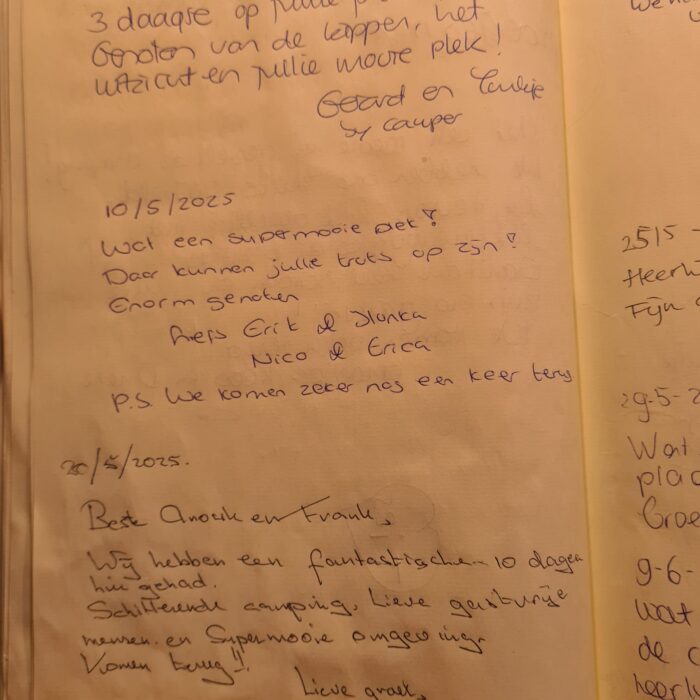 3 daagse op jullie
Genoten van de lappen, het
uitzicht en jullie mooie plek!
Geard en
by camper
10/5/2025
Wat een supermooie plek!
Daar kunnen jullie trots op zijn!
Enorm genoten
Liefs Erik & Ilonka
Nico & Erica
P.S. We komen zeker nog een keer terug
20/5/2025.
Beste Anouk en Frank,
Wij hebben een fantastische 10 dagen
hier gehad.
Schitterende camping, Lieve gastvrije
mensen en Supermooie omgeving.
Komen terug!!
Lieve groet,
We
25/5 -
Heerl
Fijn
29-5-2
Wat
plac
Groe
9-6-
wat
de c
heerl